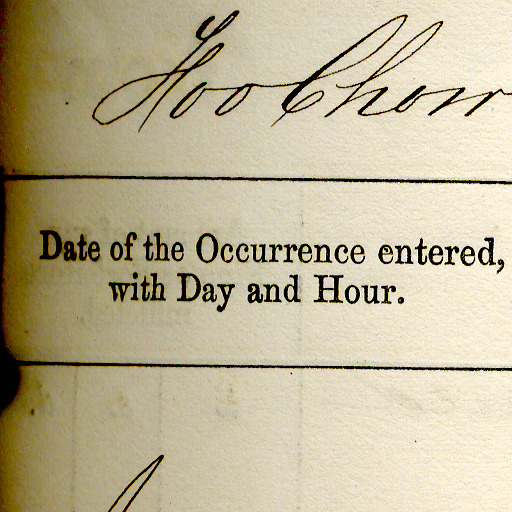 Foo Chow
Date of the Occurrence entered,
with Day and Hour.